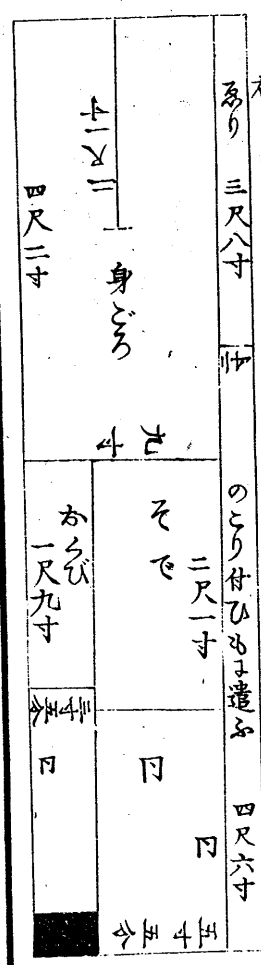 ゑり 三尺八寸
のこり付ひもに遣ふ 四尺六寸
二尺一寸
四尺二寸
身ごろ
九寸
そで
二尺一寸
おくび
一尺九寸
三寸五分
五寸五分